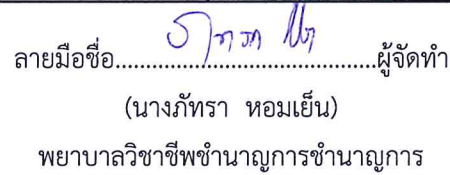 ลายมือชื่อ.............................................ผู้จัดทำ
(นางภัทรา หอมเย็น)
พยาบาลวิชาชีพชำนาญการชำนาญการ